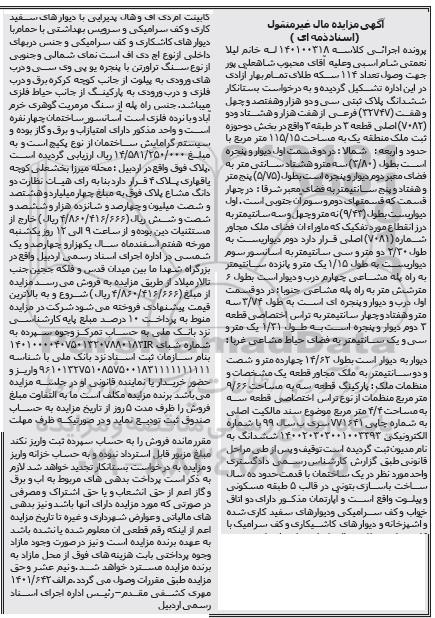 آگهی مزایده مال غیرمنقول
(اسنادذمه ای )
پرونده اجرائی کلاسه ۱۴۰۱۰۰۳۱۸ له خانم لیلا
نعمتی شام اسبی وعلیه آقای محبوب شاهعلی پور
جهت وصول تعداد ۱۱۴ سکه طلای تمام بهار آزادی
در این اداره تشکیل گردیده و به درخواست بستانکار
ششدانگ پلاک ثبتی سی و دو هزار وهفتصد و چهل
و هفت (۳۲۷۴۷) فرعی از هفت هزار و هشتاد ودو
(۷۰۸۲) اصلی قطعه ۲ در طبقه ۲ واقع در بخش دوحوزه
ثبت ملک منطقه یک به مساحت ۱۱۵/۱۵ متر مربع با
حدود و اربعه: شمالا: در دو قسمت اول دیوار و پنجره
است بطول (۳/۸۰) سه متر و هشتاد سانتی متر به
فضای معبر دوم دیوار و پنجره است بطول (۵/۷۵) پنج متر
و هفتاد و پنج سانتیمتر به فضای معبر شرقا: در چهار
قسمت که قسمتهای دوم و سوم آن جنوبی است. اول
دیواریست بطول (۹/۴۳) نه متر و چهل و سه سانتیمتر به
درز انقطاع مورد تفکیک که ماورا آن فضای ملک مجاور
شماره (۷۰۸۱) اصلی قرار دارد دوم دیواریست به
طول ۲/۳۰ دو متر و سی سانتیمتر به آسانسور سوم
دیواریست به طول ۱/۱۵ یک متر و پانزده سانتیمتر
به راه پله مشاعی چهارم درب و دیوار است بطول ۶
مترشش متر به راه پله مشاعی جنوبا: در دوقسمت
اول درب و دیوار و پنجره ای است به طول ۳/۷۴ سه
متر و هفتاد و چهار سانتیمتر به تراس اختصاصی قطعه
۳ دوم دیوار و پنجره است به طول ۱/۳۱ یک متر و
سی و یک سانتیمتر به فضای حیاط مشاعی غربا:
دیوار به دیوار است بطول ۱۴/۶۲ چهارده متر و شصت
و دو سانتیمتر به ملک مجاور قطعه یک مشخصات و
منظمات ملک: پارکینگ قطعه سه به مساحت ۹/۶۶
متر مربع منظمات از نوع تراس اختصاصی قطعه سه
به مساحت ۴/۴ متر مربع موضوع سند مالکیت اصلی
به شماره چاپی ۷۷۱۶۴۱ سری ب سال ۹۹ با شماره
الکترونیکی ۱۴۰۰۲۰۳۰۳۰۰۱۰۰۳۳۹۳ ششدانگ به
نام مدیون ثبت گردیده است توقیف و پس از طی مراحل
قانونی طبق گزارش کارشناس رسمی دادگستری
واحد مورد نظر در یک ساختمان با قدمت حدود ده سال
ساخت باسازی بتونی در قالب ۵ طبقه مسکونی
و پیلوت واقع است و آپارتمان مذکور دارای دو اتاق
خواب و کف سرامیکی و دیوارهای سفید کاری شده
و آشپزخانه و دیوار های کاشیکاری و کف سرامیک با
کابینت ام دی اف و هال پذیرایی با دیوار های سفید
کاری و کف سرامیکی و سرویس بهداشتی با حمام با
دیوار های کاشکاری و کف سرامیکی و جنس دربهای
داخلی از نوع اچ دی اف است نمای شمالی و جنوبی
از نوع سنگ تراورتن با پنجره یو پی وی سی و درب
های ورودی به پیلوت از جانب کوچه کرکره برق و درب
فلزی و درب ورودی به پارکینگ از جانب حیاط فلزی
میباشد. جنس راه پله از سنگ مرمریت گوهری خرم
آباد و با نرده فلزی است آسانسور ساختمان چهار نفره
است و واحد مذکور دارای امتیازآب و برق و گاز بوده و
سیستم گرامایش ساختمان از نوع پکیچ است و به
مبلغ ۱۴/۵۸۱/۲۵۰/۰۰۰ ریال ارزیابی گردیده است
.پلاک فوق واقع در اردبیل : محله میرزا بخشعلی کوچه
باقوازی پلاک ۴ قرار دارد بنا به رای هیات نظارت دو
دانگ مشاع پلاک فوق به مبلغ چهار میلیارد و هشتصد
و شصت میلیون و چهارصد و شانزده هزار و ششصد و
شصت و شش ریال (۴/۸۶۰/۴۱۶/۶۶۶ ریال) خارج از
مستثنیات دین بوده و از ساعت ۹ الی ۱۲ روز یکشنبه
مورخه هفتم اسفندماه سال یکهزارو چهارصد و یک
شمسی در اداره اجرای اسناد رسمی اردبیل واقع در
بزرگراه شهدا ما بین میدان قدس و فلکه ججین جنب
تالار میلاد از طریق مزایده به فروش می رسد مزایده
از مبلغ (۴/۸۶۰/۴۱۶/۶۶۶ ریال ) شروع و به بالاترین
قیمت پیشنهادی فروخته می شود شرکت در مزایده
منوط به پرداخت ۱۰ درصد مبلغ پایه کارشناسی
نزد بانک ملی به حساب تمرکز وجوه سپرده به
بنام سازمان ثبت اسناد نزد بانک ملی با شناسه
حضور خریدار یا نماینده قانونی او در جلسه مزایده
می باشد برنده مزایده مکلف است ما به التفاوت مبلغ
فروش را ظرف مدت ۵ روز از تاریخ مزایده به حساب
صندوق ثبت تودیع نماید و در صورتیکه ظرف مهلت
مقرر مانده فروش را به حساب سپرده ثبت واریز نکند
مبلغ مزبور قابل استرداد نبوده و به حساب خزانه واریز
و مزایده به درخواست بستانکار تجدید خواهد شد لازم
به ذکر است پرداخت بدهی های مربوط به آب و برق
و گاز اعم از حق انشعاب و یا حق اشتراک و مصرفی
در صورتی که مورد مزایده دارای آنها باشد و نیز بدهی
های مالیاتی و عوارض شهرداری و غیره تا تاریخ مزایده
اعم از اینکه رقم قطعی آن معلوم شده یا نشده باشد
به عهده برنده مزایده است و نیز در صورت وجود مازاد
وجوه پرداختی بابت هزینه های فوق از محل مازاد به
برنده مزایده مسترد خواهد شد. و نیم عشر و حق
مزایده طبق مقررات وصول می گردد.م الف ۱۴۰۱/۶۴۲
مهری کشفی مقدم – رئیس اداره اجرای اسناد
رسمی اردبیل